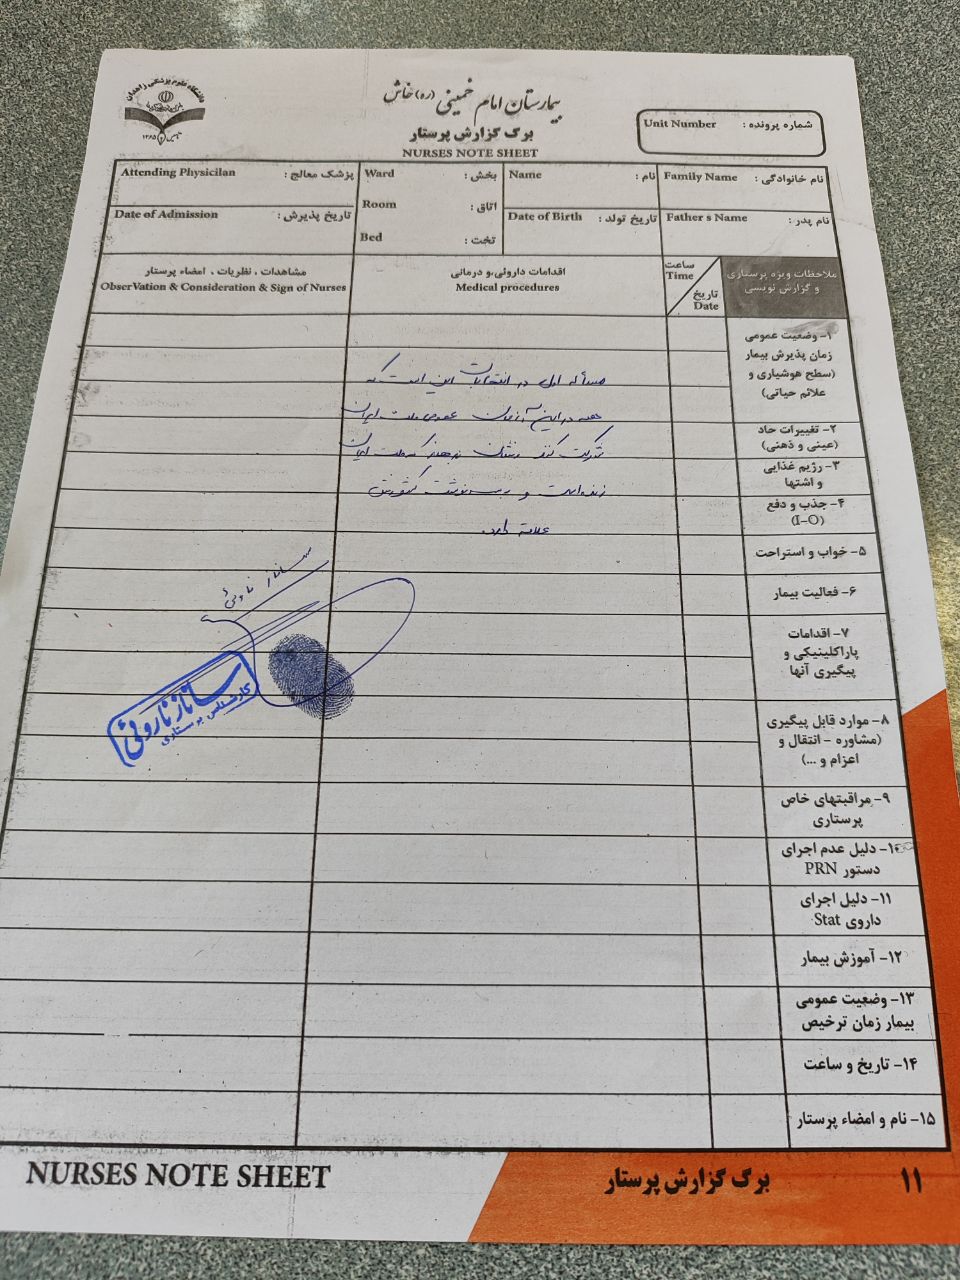 دانشگاه علوم پزشکی زاهدان
تاسیس ۱۳۶۵
بیمارستان امام خمینی (ره) خاش
برگ گزارش پرستار
NURSES NOTE SHEET
Unit Number شماره پرونده :
Attending Physicilan پزشک معالج :
Ward بخش :
Name نام :
Family Name نام خانوادگی :
Room اتاق :
Date of Admission تاریخ پذیرش :
Date of Birth تاریخ تولد :
Father s Name نام پدر :
Bed تخت :
مشاهدات ، نظریات ، امضاء پرستار
ObserVation & Consideration & Sign of Nurses
اقدامات داروئی،و درمانی
Medical procedures
ساعت
Time
تاریخ
Date
ملاحظات ویژه پرستاری
و گزارش نویسی
۱- وضعیت عمومی
زمان پذیرش بیمار
(سطح هوشیاری و
علائم حیاتی)
۲- تغییرات حاد
(عینی و ذهنی)
۳- رژیم غذایی
و اشتها
۴- جذب و دفع
(I-O)
۵- خواب و استراحت
۶- فعالیت بیمار
۷- اقدامات
پاراکلینیکی و
پیگیری آنها
۸- موارد قابل پیگیری
(مشاوره - انتقال و
اعزام و ...)
۹- مراقبتهای خاص
پرستاری
۱۰- دلیل عدم اجرای
دستور PRN
۱۱- دلیل اجرای
داروی Stat
۱۲- آموزش بیمار
۱۳- وضعیت عمومی
بیمار زمان ترخیص
۱۴- تاریخ و ساعت
۱۵- نام و امضاء پرستار
مسأله اول در انتخابات این است که
همه در این آزمون عمومی ملت ایران
شرکت کنند نشان بدهند که ملت ایران
زنده است و به سرنوشت کشورش
علاقه دارد.
ساناز ناروئی
ساناز ناروئی
کارشناس پرستاری
NURSES NOTE SHEET
برگ گزارش پرستار
۱۱